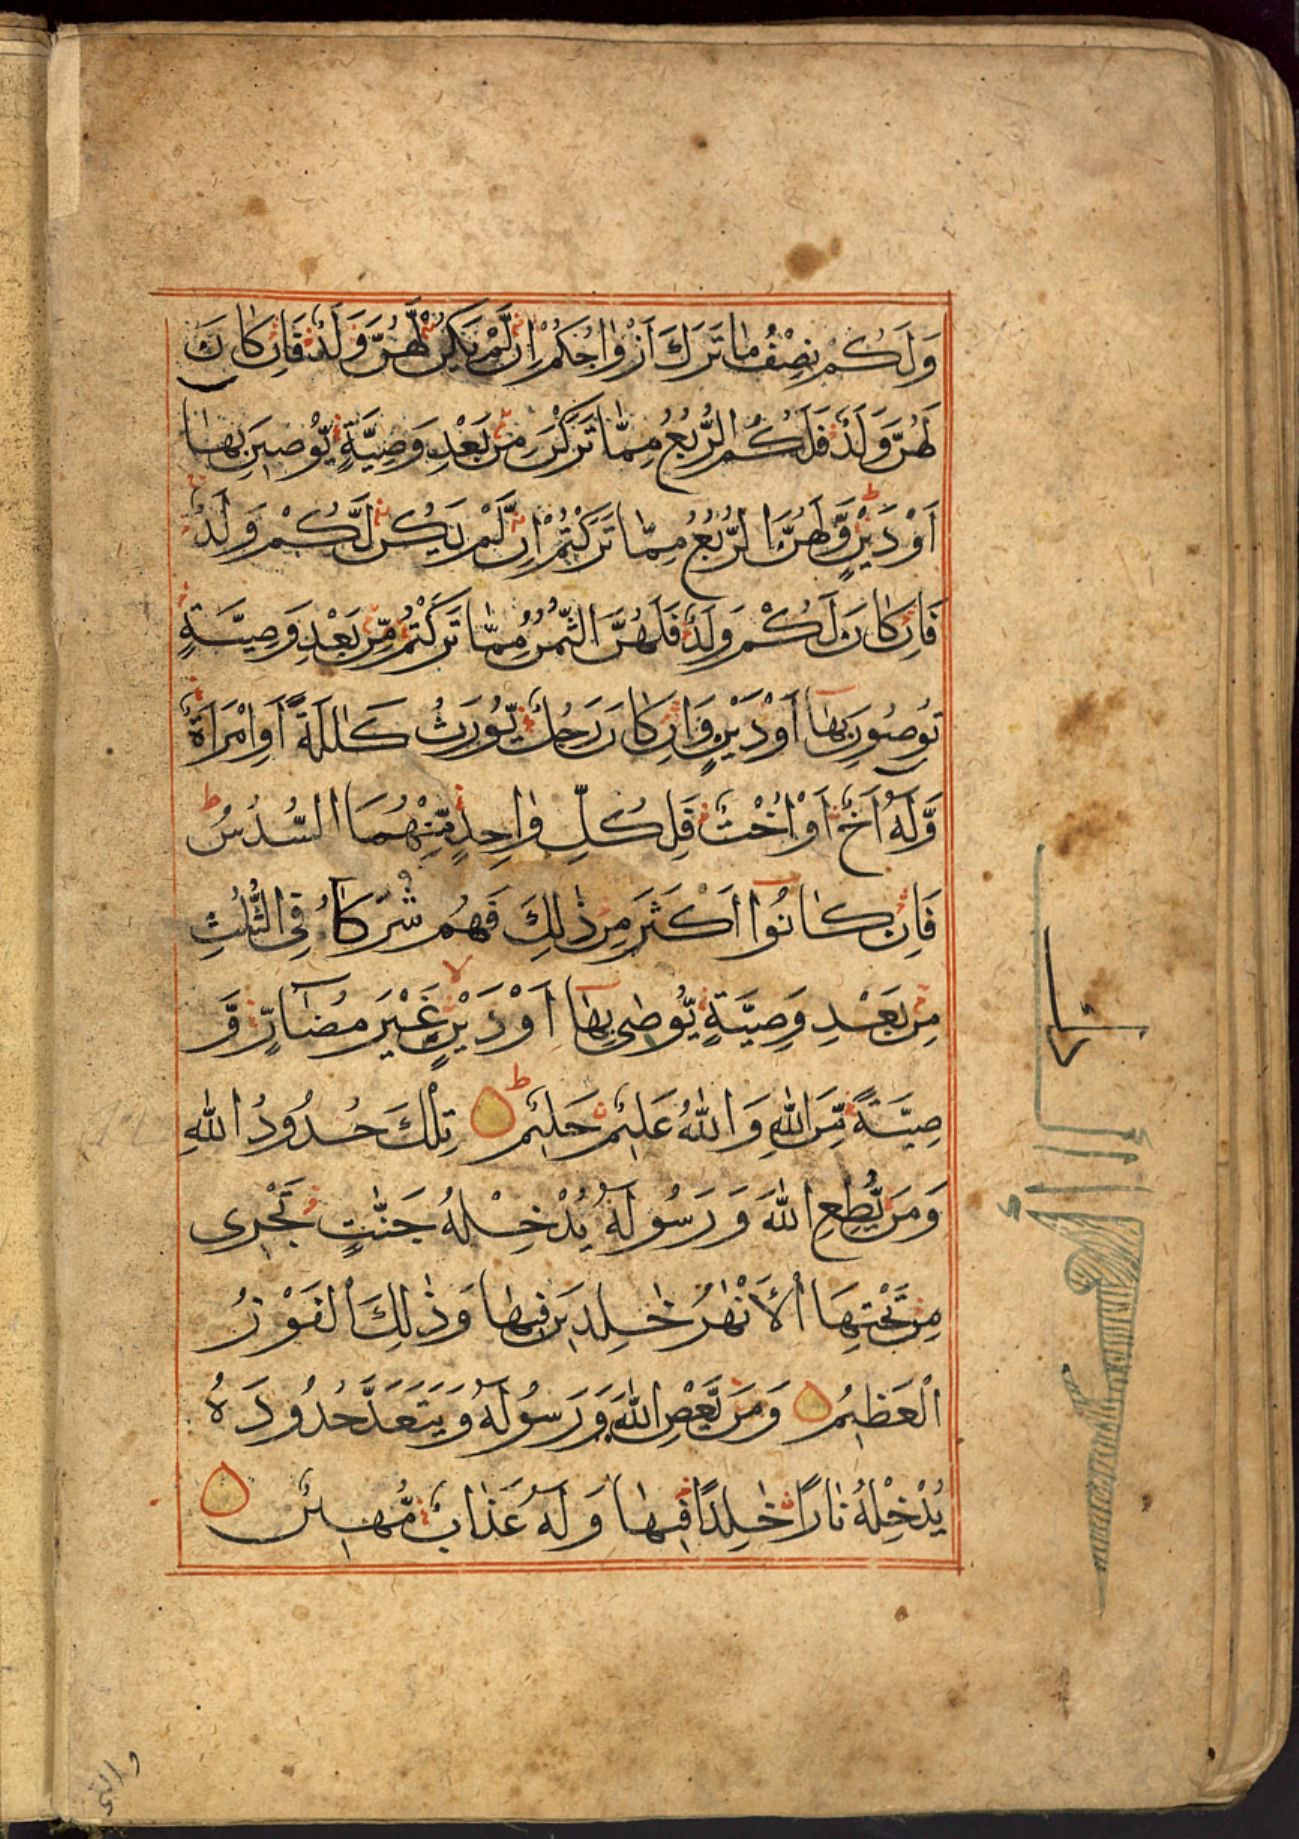 وَلَكُمْ نِصْفُ مَا تَرَكَ اَزْوَاجُكُمْ اِنْ لَّمْ يَكُنْ لَّهُنَّ وَلَدٌ فَاِنْ كَانَ
لَهُنَّ وَلَدٌ فَلَكُمُ الرُّبُعُ مِمَّا تَرَكْنَ مِنْ بَعْدِ وَصِيَّةٍ يُّوْصِيْنَ بِهَا
اَوْ دَيْنٍ وَّلَهُنَّ الرُّبُعُ مِمَّا تَرَكْتُمْ اِنْ لَّمْ يَكُنْ لَّكُمْ وَلَدٌ
فَاِنْ كَانَ لَكُمْ وَلَدٌ فَلَهُنَّ الثُّمُنُ مِمَّا تَرَكْتُمْ مِّنْ بَعْدِ وَصِيَّةٍ
تُوصُونَ بِهَا اَوْ دَيْنٍ وَاِنْ كَانَ رَجُلٌ يُّورَثُ كَلٰلَةً اَوِ امْرَاَةٌ
وَّلَهُ اَخٌ اَوْ اُخْتٌ فَلِكُلِّ وَاحِدٍ مِّنْهُمَا السُّدُسُ ط
فَاِنْ كَانُوا اَكْثَرَ مِنْ ذٰلِكَ فَهُمْ شُرَكَآءُ فِى الثُّلُثِ
مِنْ بَعْدِ وَصِيَّةٍ يُّوْصٰى بِهَا اَوْ دَيْنٍ لا غَيْرَ مُضَآرٍّ وَّ
صِيَّةً مِّنَ اللّٰهِ وَاللّٰهُ عَلِيْمٌ حَلِيْمٌ ط تِلْكَ حُدُودُ اللّٰهِ
وَمَنْ يُّطِعِ اللّٰهَ وَرَسُولَهُ يُدْخِلْهُ جَنّٰتٍ تَجْرِى
مِنْ تَحْتِهَا الْاَنْهٰرُ خٰلِدِيْنَ فِيْهَا وَذٰلِكَ الْفَوْزُ
الْعَظِيْمُ وَمَنْ يَّعْصِ اللّٰهَ وَرَسُولَهُ وَيَتَعَدَّ حُدُودَهُ
يُدْخِلْهُ نَارًا خَالِدًا فِيْهَا وَلَهُ عَذَابٌ مُّهِيْنٌ
والتى